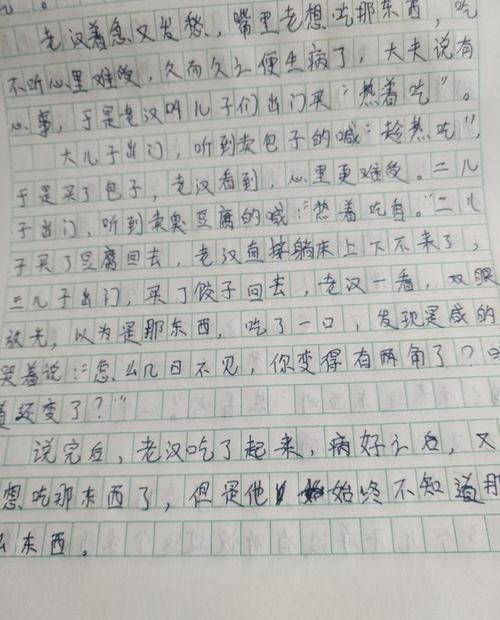 老汉着急又发愁，嘴里老想吃那东西，吃
不听心里难受，久而久之便生病了，大夫说有
心事，于是老汉叫儿子们出门买“热着吃”。
大儿子出门，听到卖包子的喊：“趁热吃”，
于是买了包子，老汉看到，心里更难受。二儿
子出门、听到卖臭豆腐的喊：“热着吃香。”二儿
子买了豆腐回去，老汉直接躺床上下不来了，
三儿子出门，买了饺子回去，老汉一看，双眼
放光，以为是那东西，吃了一口，发现是咸的
哭着说：“怎么几日不见，你变得有两角了？
道还变了？”
说完后，老汉吃了起来，病好之后，又
想吃那东西了，但是他始终不知道那
么东西。